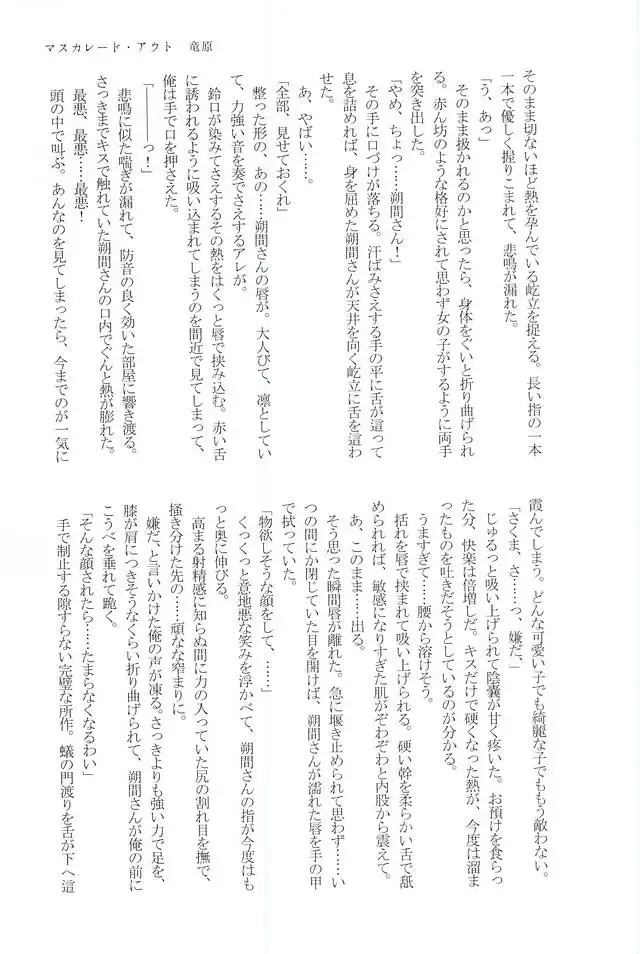 マスカレード・アウト　竜原
そのまま切ないほど熱を孕んでいる屹立を捉える。長い指の一本
一本で優しく握りこまれて、悲鳴が漏れた。
「う、あっ」
そのまま扱かれるのかと思ったら、身体をぐいと折り曲げられ
る。赤ん坊のような格好にされて思わず女の子がするように両手
を突き出した。
「やめ、ちょっ……朔間さん！」
その手に口づけが落ちる。汗ばみさえする手の平に舌が這って
息を詰めれば、身を屈めた朔間さんが天井を向く屹立に舌を這わ
せた。
あ、やばい……。
「全部、見せておくれ」
整った形の、あの……朔間さんの唇が。大人びて、凛としてい
て、力強い音を奏でさえするアレが。
鈴口が染みてさえするその熱をはくっと唇で挟み込む。赤い舌
に誘われるように吸い込まれてしまうのを間近で見てしまって、
俺は手で口を押さえた。
「―――っ！」
悲鳴に似た喘ぎが漏れて、防音の良く効いた部屋に響き渡る。
さっきまでキスで触れていた朔間さんの口内でぐんと熱が膨れた。
最悪、最悪……最悪！
頭の中で叫ぶ。あんなのを見てしまったら、今までのが一気に
霞んでしまう。どんな可愛い子でも綺麗な子でももう敵わない。
「さくま、さ……っ、嫌だ、」
じゅるっと吸い上げられて陰嚢が甘く疼いた。お預けを食らっ
た分、快楽は倍増しだ。キスだけで硬くなった熱が、今度は溜ま
ったものを吐きだそうとしているのが分かる。
うますぎて……腰から溶けそう。
括れを唇で挟まれて吸い上げられる。硬い幹を柔らかい舌で舐
められれば、敏感になりすぎた肌がぞわぞわと内股から震えて。
あ、このまま……出る。
そう思った瞬間唇が離れた。急に堰き止められて思わず……い
つの間にか閉じていた目を開けば、朔間さんが濡れた唇を手の甲
で拭っていた。
「物欲しそうな顔をして、……」
くっくっと意地悪な笑みを浮かべて、朔間さんの指が今度はも
っと奥に伸びる。
高まる射精感に知らぬ間に力の入っていた尻の割れ目を撫で、
掻き分けた先の……頑なな窄まりに。
嫌だ、と言いかけた俺の声が凍る。さっきよりも強い力で足を、
膝が肩につきそうなくらい折り曲げられて、朔間さんが俺の前に
こうべを垂れて跪く。
「そんな顔されたら……たまらなくなるわい」
手で制止する隙すらない完璧な所作。蟻の門渡りを舌が下へ這